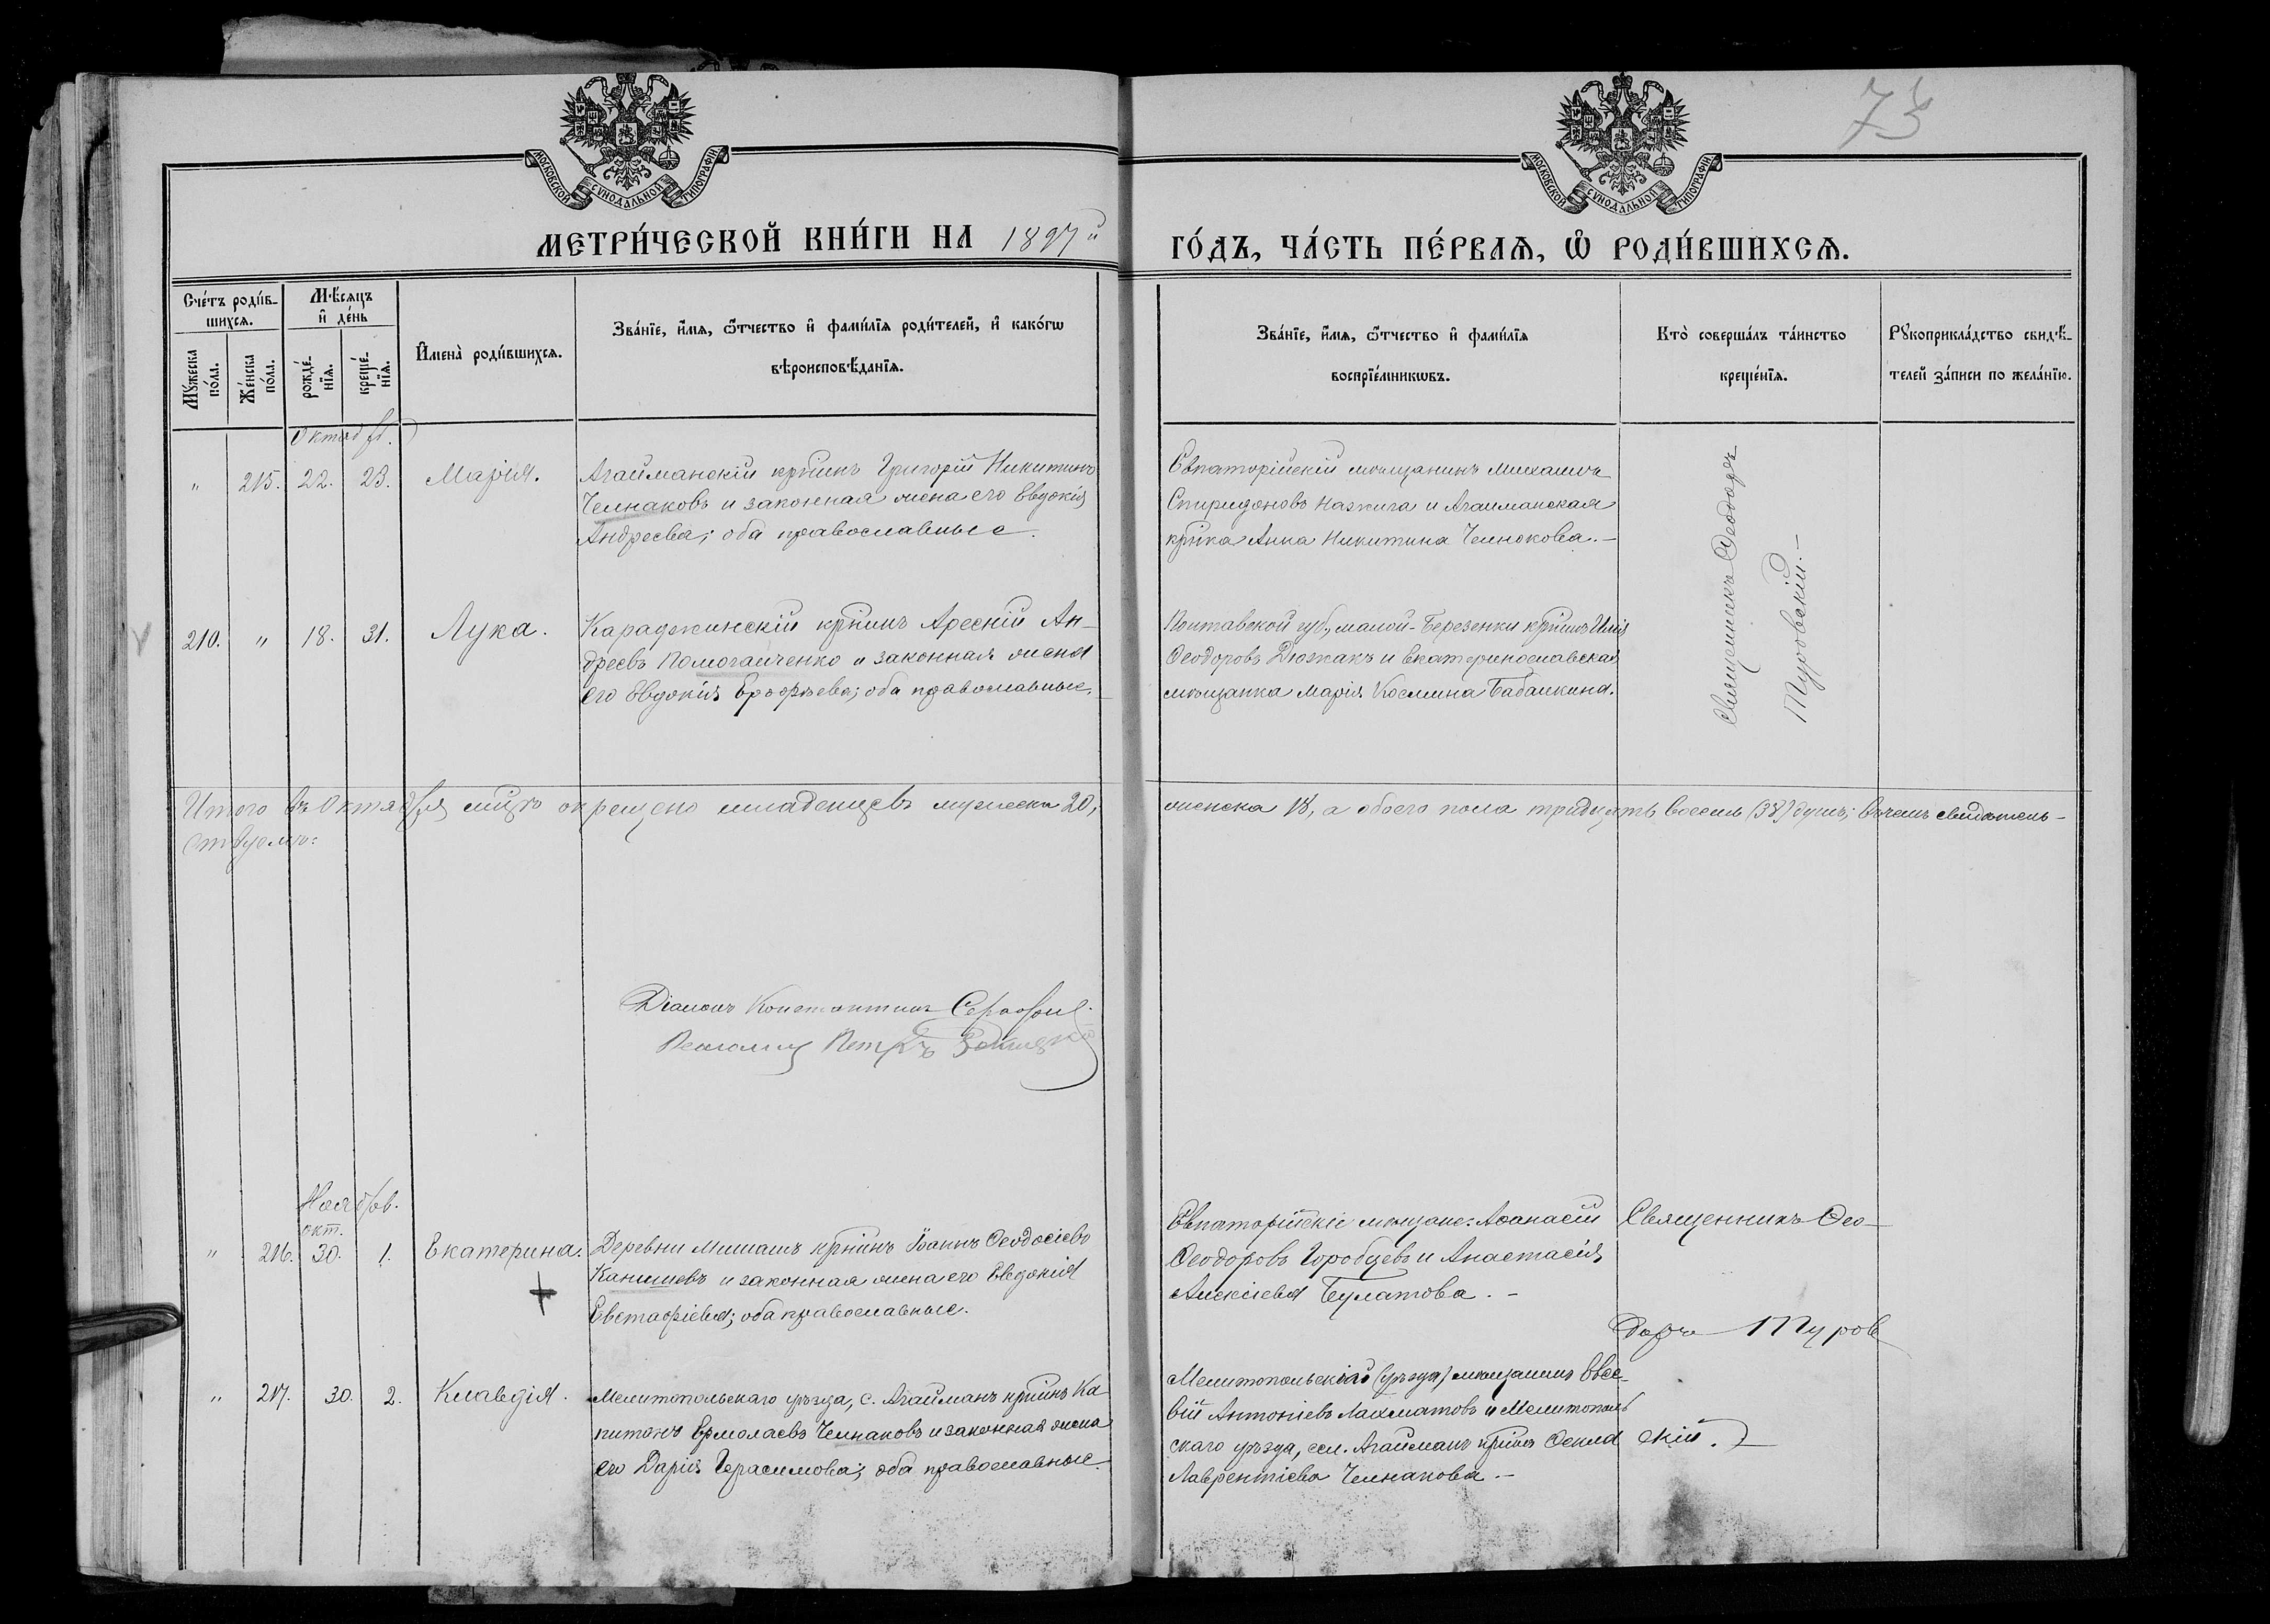 73
МОСКОВСКОЙ СѴНОДАЛЬНОЙ ТИПОГРАФІИ
МОСКОВСКОЙ СѴНОДАЛЬНОЙ ТИПОГРАФІИ
МЕТРИ́ЧЕСКОЙ КНИ́ГИ НА 1897й ГО́ДЪ, ЧА́СТЬ ПЕ́РВАѦ, Ѽ РОДИ́ВШИХСѦ.
Сче́тъ роди́в-
шихсѧ.
Мꙋ́жеска
по́ла.
Же́нска
по́ла.
Мѣ́сѧцъ
и҆ де́нь
рожде́-
нїѧ.
креще́-
нїѧ.
И҆мена̀ роди́вшихсѧ.
Зва́нїе, и҆́мѧ, ѻ҆́тчество и҆ фами́лїѧ роди́телей, и҆ како́гѡ
вѣроисповѣ́данїѧ.
Зва́нїе, и҆́мѧ, ѻ҆́тчество и҆ фами́лїѧ
воспрїе́мникѡвъ.
Кто̀ соверша́лъ та́инство
креще́нїѧ.
Рꙋкоприкла́дство свидѣ́-
телей за́писи по жела́нїю.
Октябр.
" 215. 22. 23. Марія.
Агайманскій крнинъ Григорій Никитинъ
Челнаковъ и законная жена его Евдокія
Андреева; оба православные.
Евпаторійскій мѣщанинъ Михаилъ
Спиридоновъ и Агайманская
крнка Анна Никитина Челнокова.—
Священникъ Ѳеодоръ
Туровскій.—
210. " 18. 31. Лука.
Караджинскій крнинъ Арсеній Ан-
дреевъ Помогайченко и законная жена
его Евдокія Ерофѣева; оба православные.
Полтавской губ., малой-Березенки крнинъ Илія
Ѳеодоровъ Дюжакъ и Екатеринославская
мѣщанка Марія Космина Бабашкина.
Итого въ Октябрѣ мцѣ окрещено младенцевъ мужеска 20, женска 18, а обоего пола тридцать восемь (38) душъ; въ чемъ свидѣтель-
ствуемъ:
Діаконъ Константинъ
Псаломщ Петръ
Ноябрь.
окт.
" 216. 30. 1. Екатерина.
Деревни крнинъ Іоаннъ Ѳеодосіевъ
Канишевъ и законная жена его Евдокія
Евстафіева; оба православные.
Евпаторійскіе мѣщане: Аѳанасій
Ѳеодоровъ Горобцевъ и Анастасія
Алексіева Булатова.—
Священникъ Ѳео-
доръ Туров
скій.
" 217. 30. 2. Клавдія.
Мелитопольскаго уѣзда, с. Агайманъ крнинъ Ка-
питонъ Ермолаевъ Челнаковъ и законная жена
его Дарія Герасимова; оба православные.
Мелитопольскій (уѣзда) мѣщанинъ Евсе-
вій Антоніевъ Лахматовъ и Мелитополь
скаго уѣзда, сел. Агайманъ крнка Ѳекла
Лаврентіева Челнакова.—